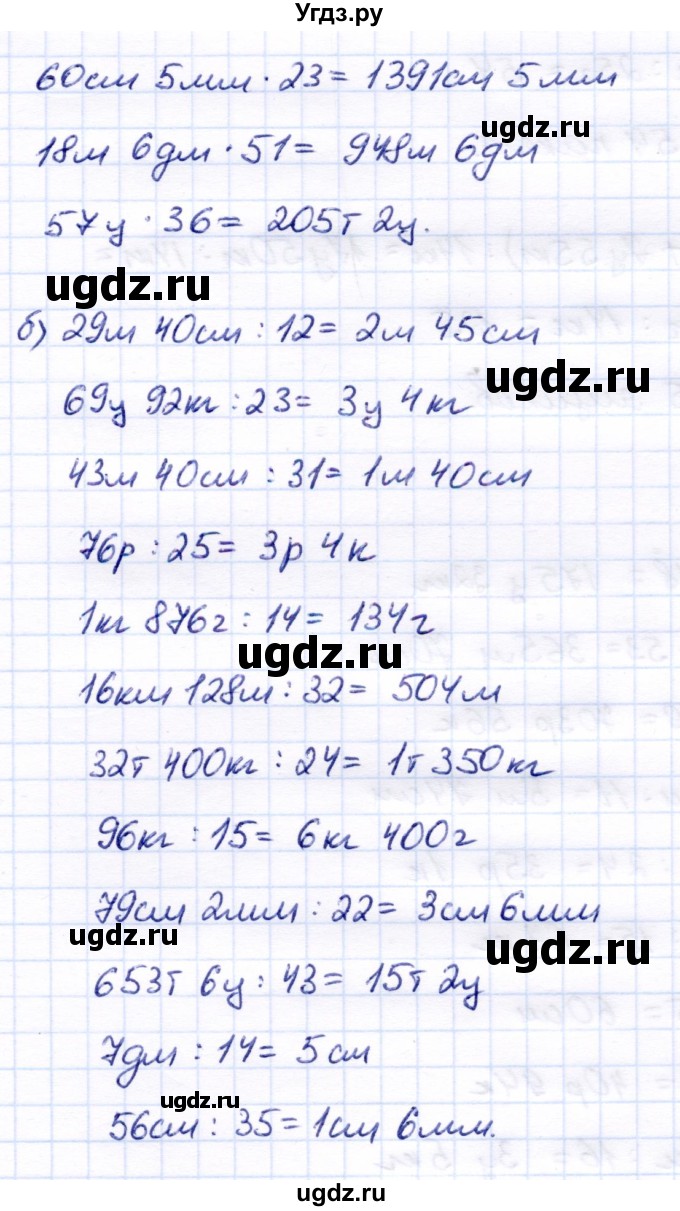 Угдз.ру
60см 5мм · 23 = 1391см 5мм
ugdz.ru
18м 6дм · 51 = 948м 6дм
57ц · 36 = 205т 2ц.
ugdz.ru
б) 29м 40см : 12 = 2м 45см
ugdz.ru
69ц 92кг : 23 = 3ц 4кг
43м 40см : 31 = 1м 40см
76р : 25 = 3р 4к
1кг 876г : 14 = 134г
ugdz.ru
16км 128м : 32 = 504м
32т 400кг : 24 = 1т 350кг
96кг : 15 = 6кг 400г
79см 2мм : 22 = 3см 6мм
ugdz.ru
ugdz.ru
653т 6ц : 43 = 15т 2ц
7дм : 14 = 5см
ugdz.ru
56см : 35 = 1см 6мм.
ugdz.ru